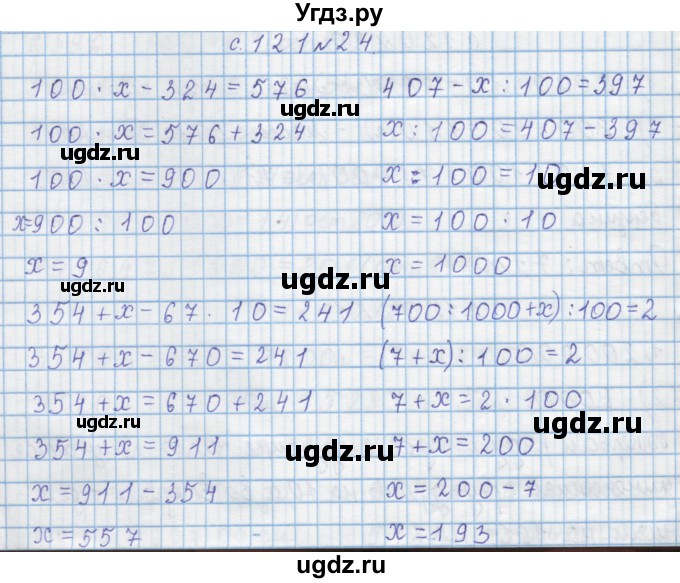 Угдз.ру
с. 121 №24.
100 · x - 324 = 576
100 · x = 576 + 324
100 · x = 900
x=900 : 100
x = 9
407 - x : 100 = 397
x : 100 = 407 - 397
x : 100 = 10
x = 100 · 10
x = 1000
354 + x - 67 · 10 = 241
354 + x - 670 = 241
354 + x = 670 + 241
354 + x = 911
x = 911 - 354
x = 557
(700 : 1000 + x) : 100 = 2
(7 + x) : 100 = 2
7 + x = 2 · 100
7 + x = 200
x = 200 - 7
x = 193
ugdz.ru
ugdz.ru
ugdz.ru
ugdz.ru
ugdz.ru
ugdz.ru
ugdz.ru
ugdz.ru
ugdz.ru
ugdz.ru
ugdz.ru
Угдз.ру